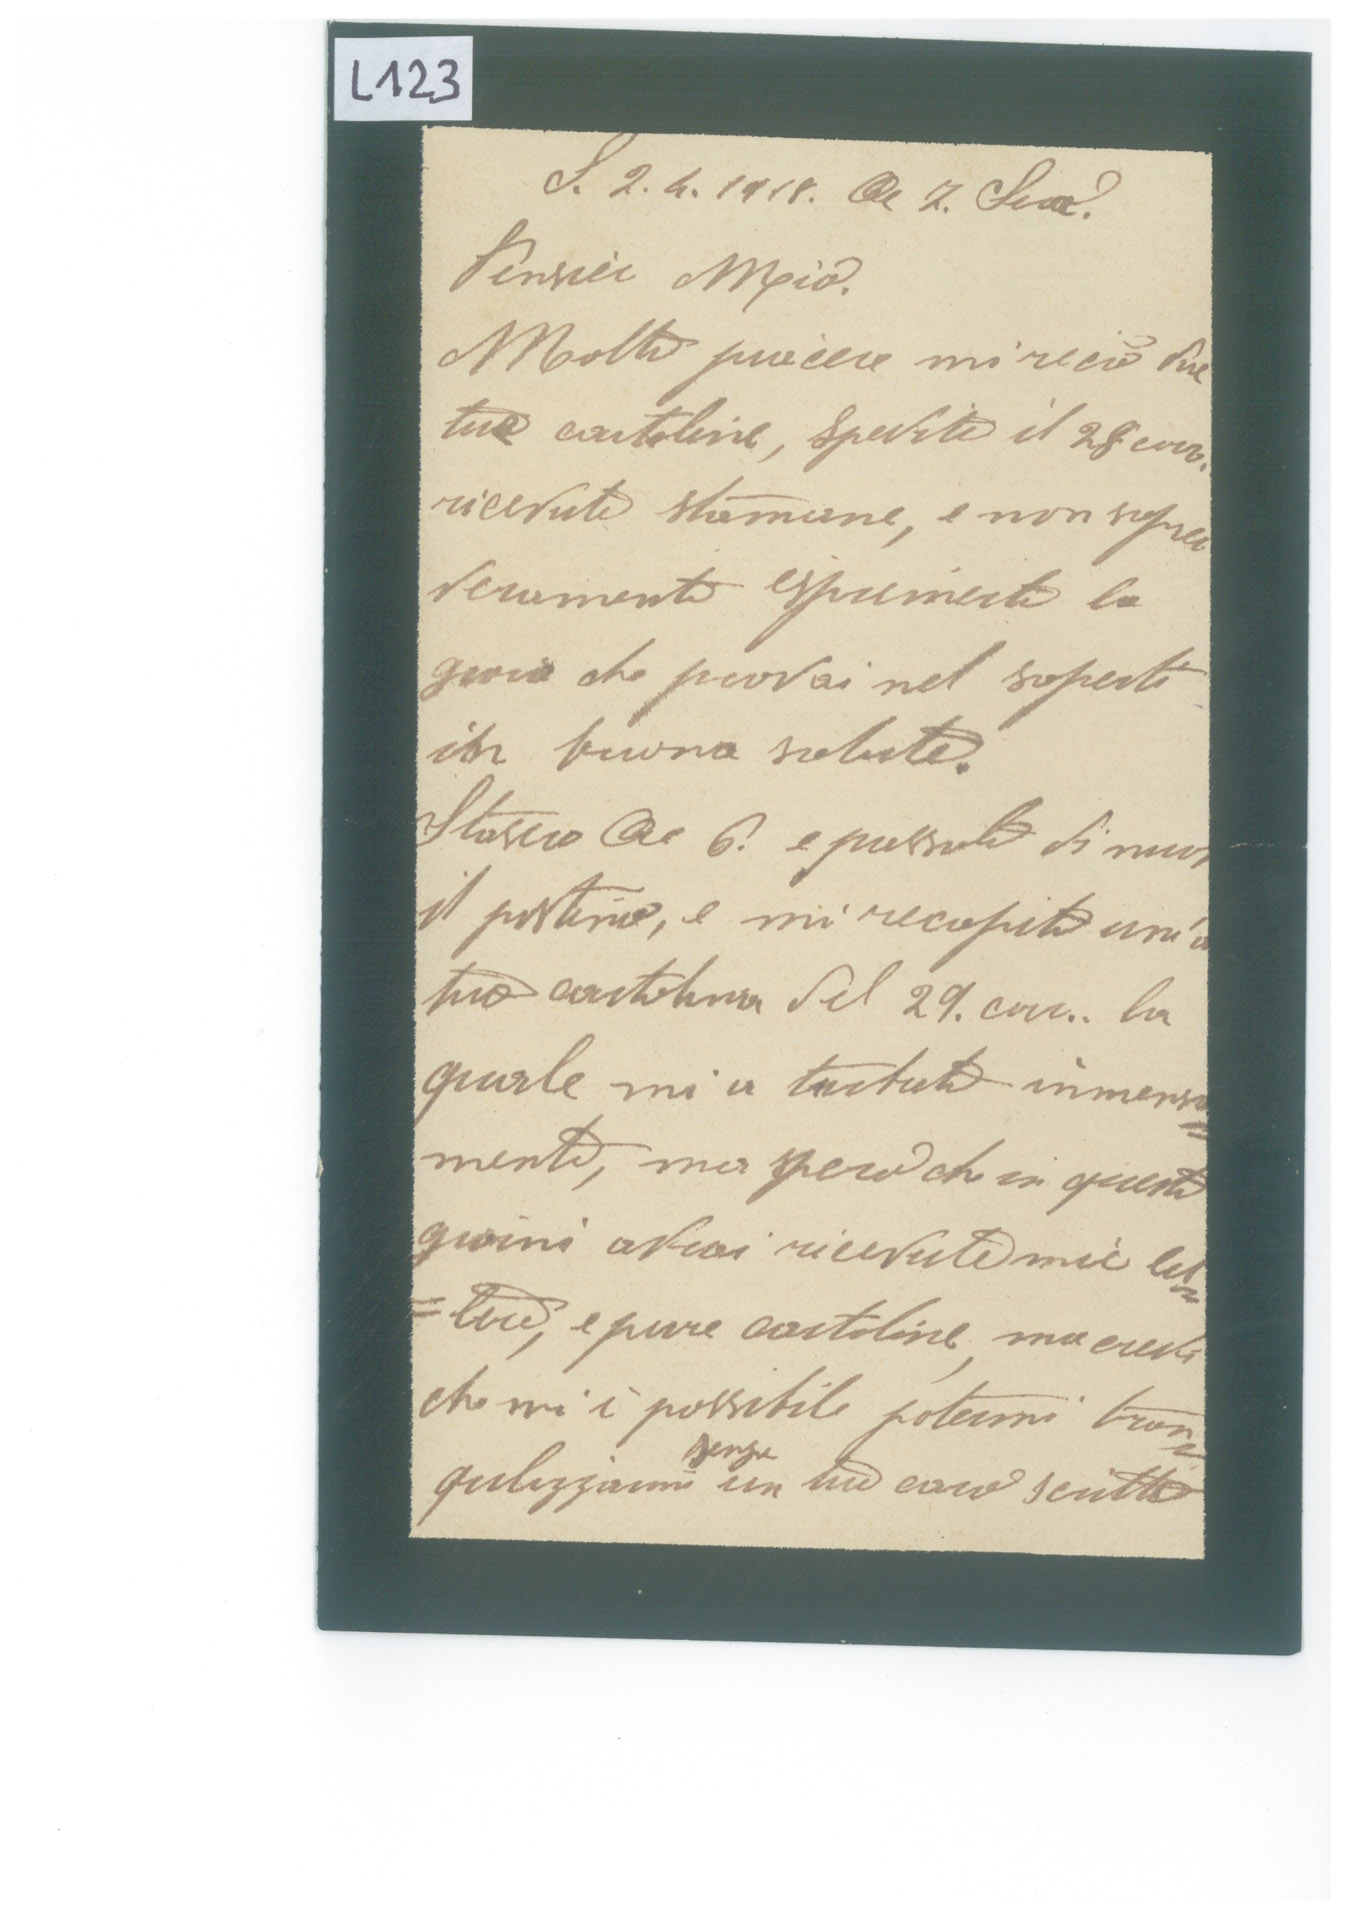 L123
S. 2. 4. 1918. Ore 7. Sera.
Pensier Mio.
Molto piacere mi reco due
tue cartoline, spedite il 28 corr.
ricevute stamane, e non saprei
veramente esprimerti la
gioia che provai nel saperti
in buona salute.
Stasera Ore 6. e passato di nuov
il postino, e mi recapito un'a
tua cartolina del 29. corr.. la
quale mi a turbato inmensa=
mente, ma spero che in questi
gioini avrai ricevute mie let=
=tere, e pure cartoline, ma credi
che mi è possibile potermi tran=
quilizzarmi senza un tuo caro scritto